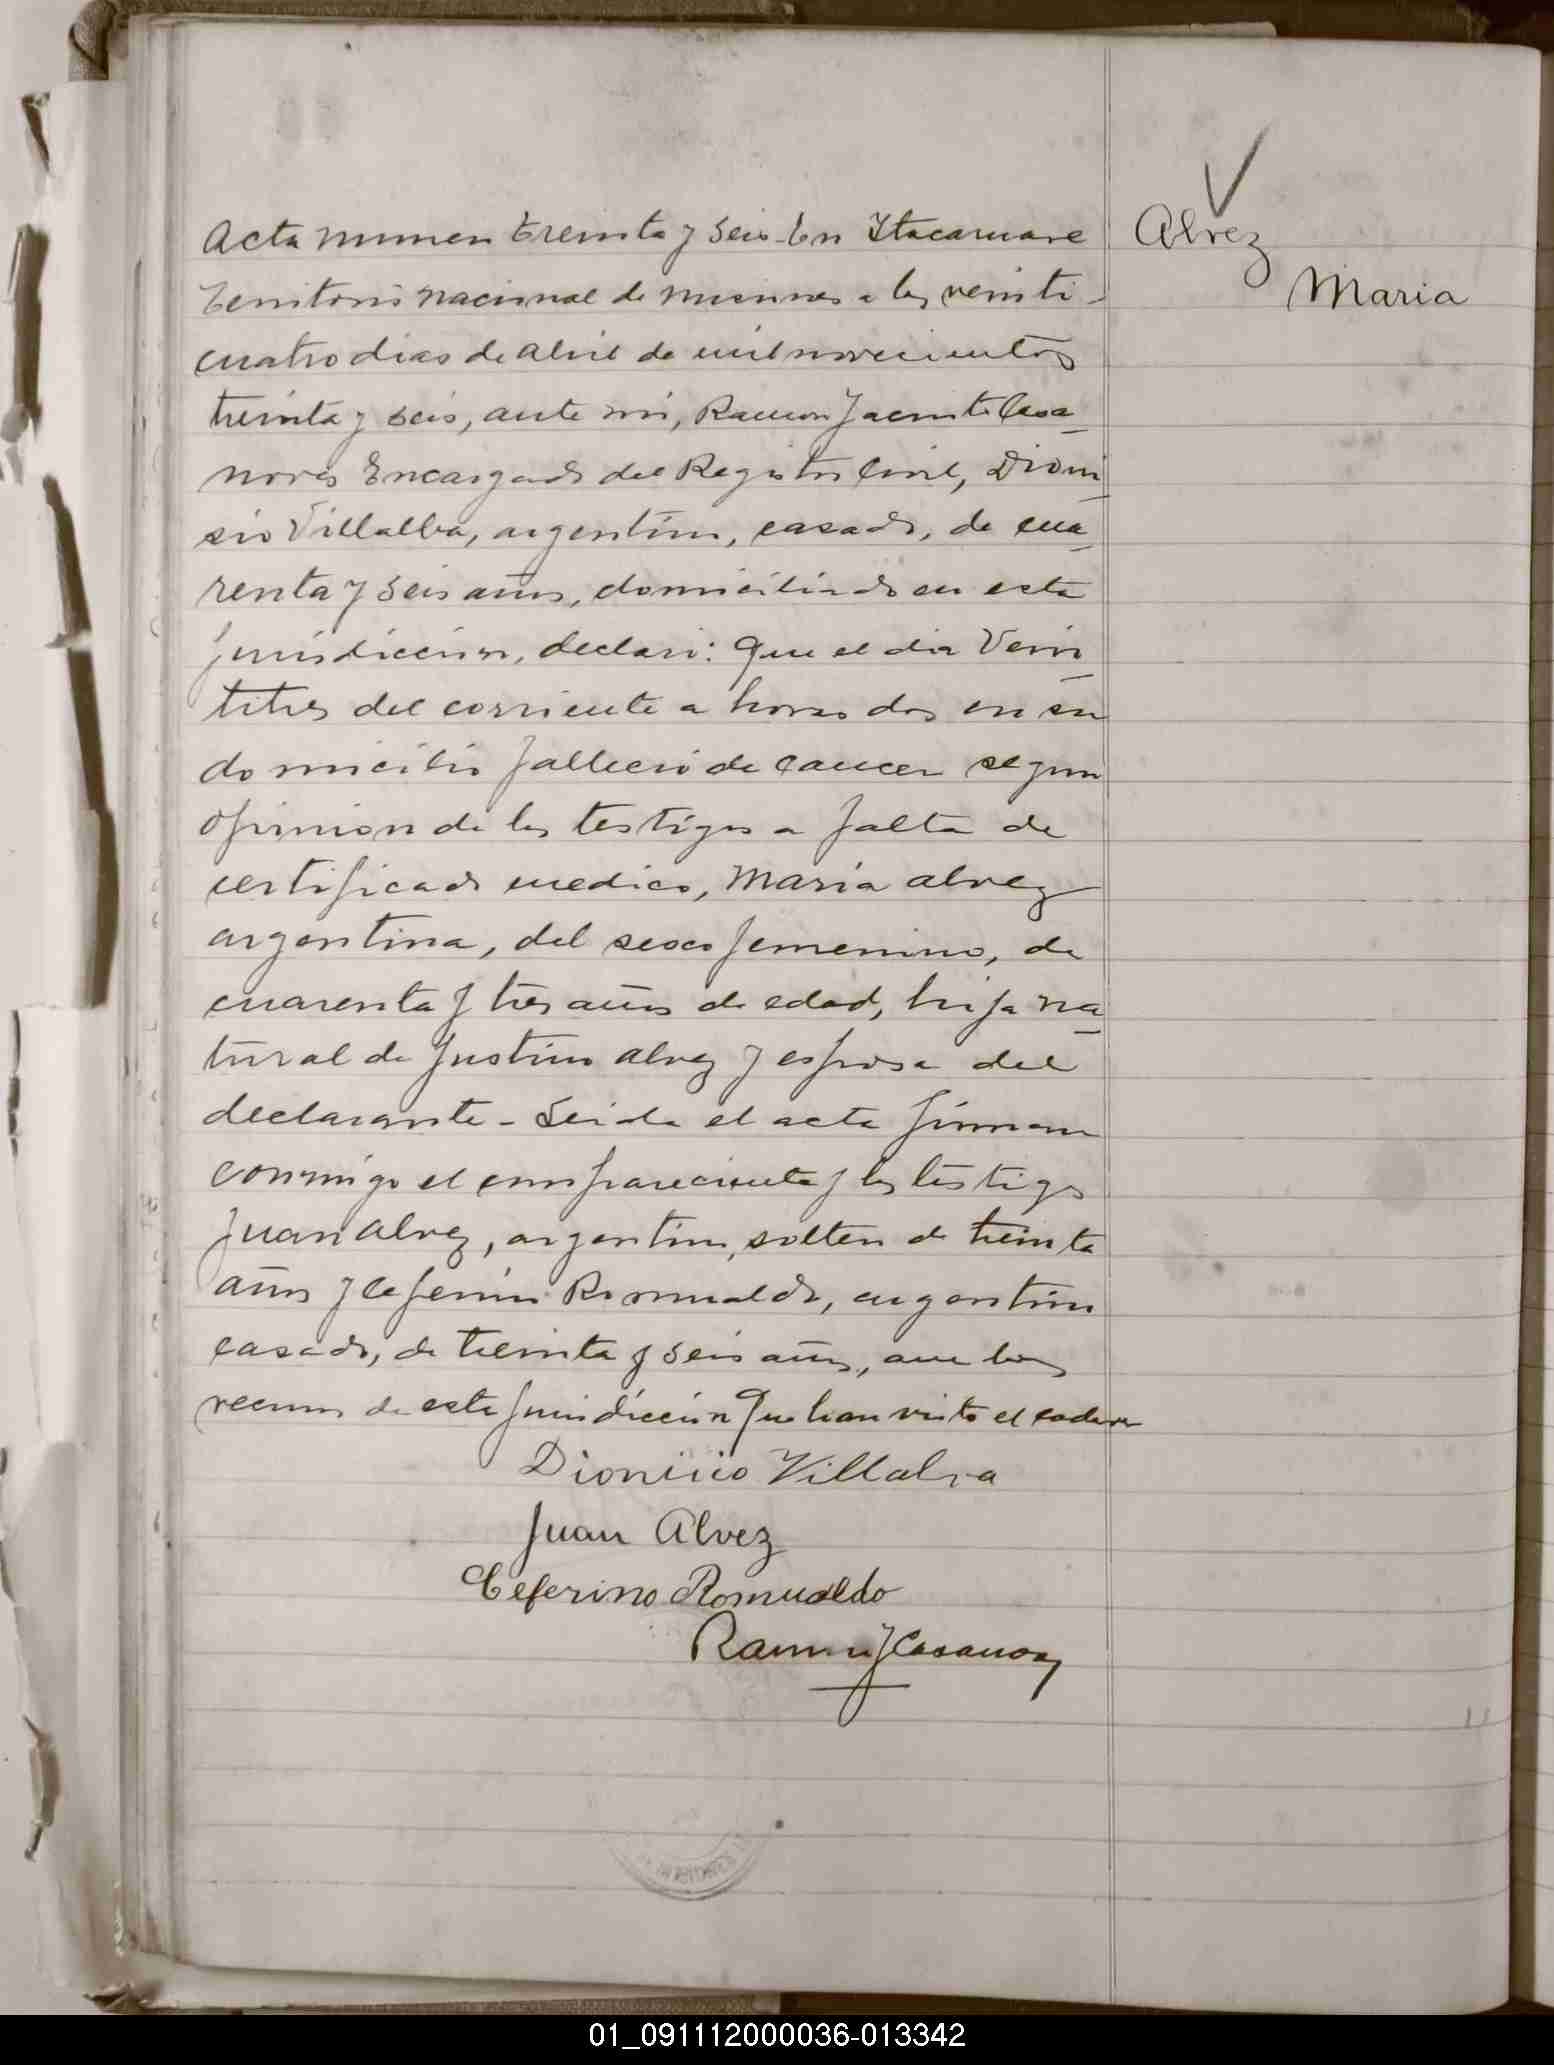 Alvez
Maria
Acta numero treinta y seis. En Itacaruare
territorio nacional de misiones a los veinti-
cuatro dias de abril de mil novecientos
treinta y seis, ante mi, Ramon Jacinto Casa-
nova Encargado del Registro Civil, Dioni-
sio Villalba, argentino, casado, de cua-
renta y seis años, domiciliado en esta
jurisdiccion, declaró: Que el dia Vein-
titres del corriente a horas dos en su
domicilio falleció de cancer segun
opinion de los testigos a falta de
certificado medico, Maria alvez
argentina, del sexo femenino, de
cuarenta y tres años de edad, hija na-
tural de Justino alvez y esposa del
declarante - Leida el acta firman
conmigo el compareciente y los testigos
Juan Alvez, argentino, soltero de treinta
años y Ceferino Romualdo, argentino
casado, de treinta y seis años, ambos
vecinos de esta jurisdicción Que han visto el cadaver
Dionicio Villalva
Juan Alvez
Ceferino Romualdo
Ramon J Casanova
01_091112000036-013342